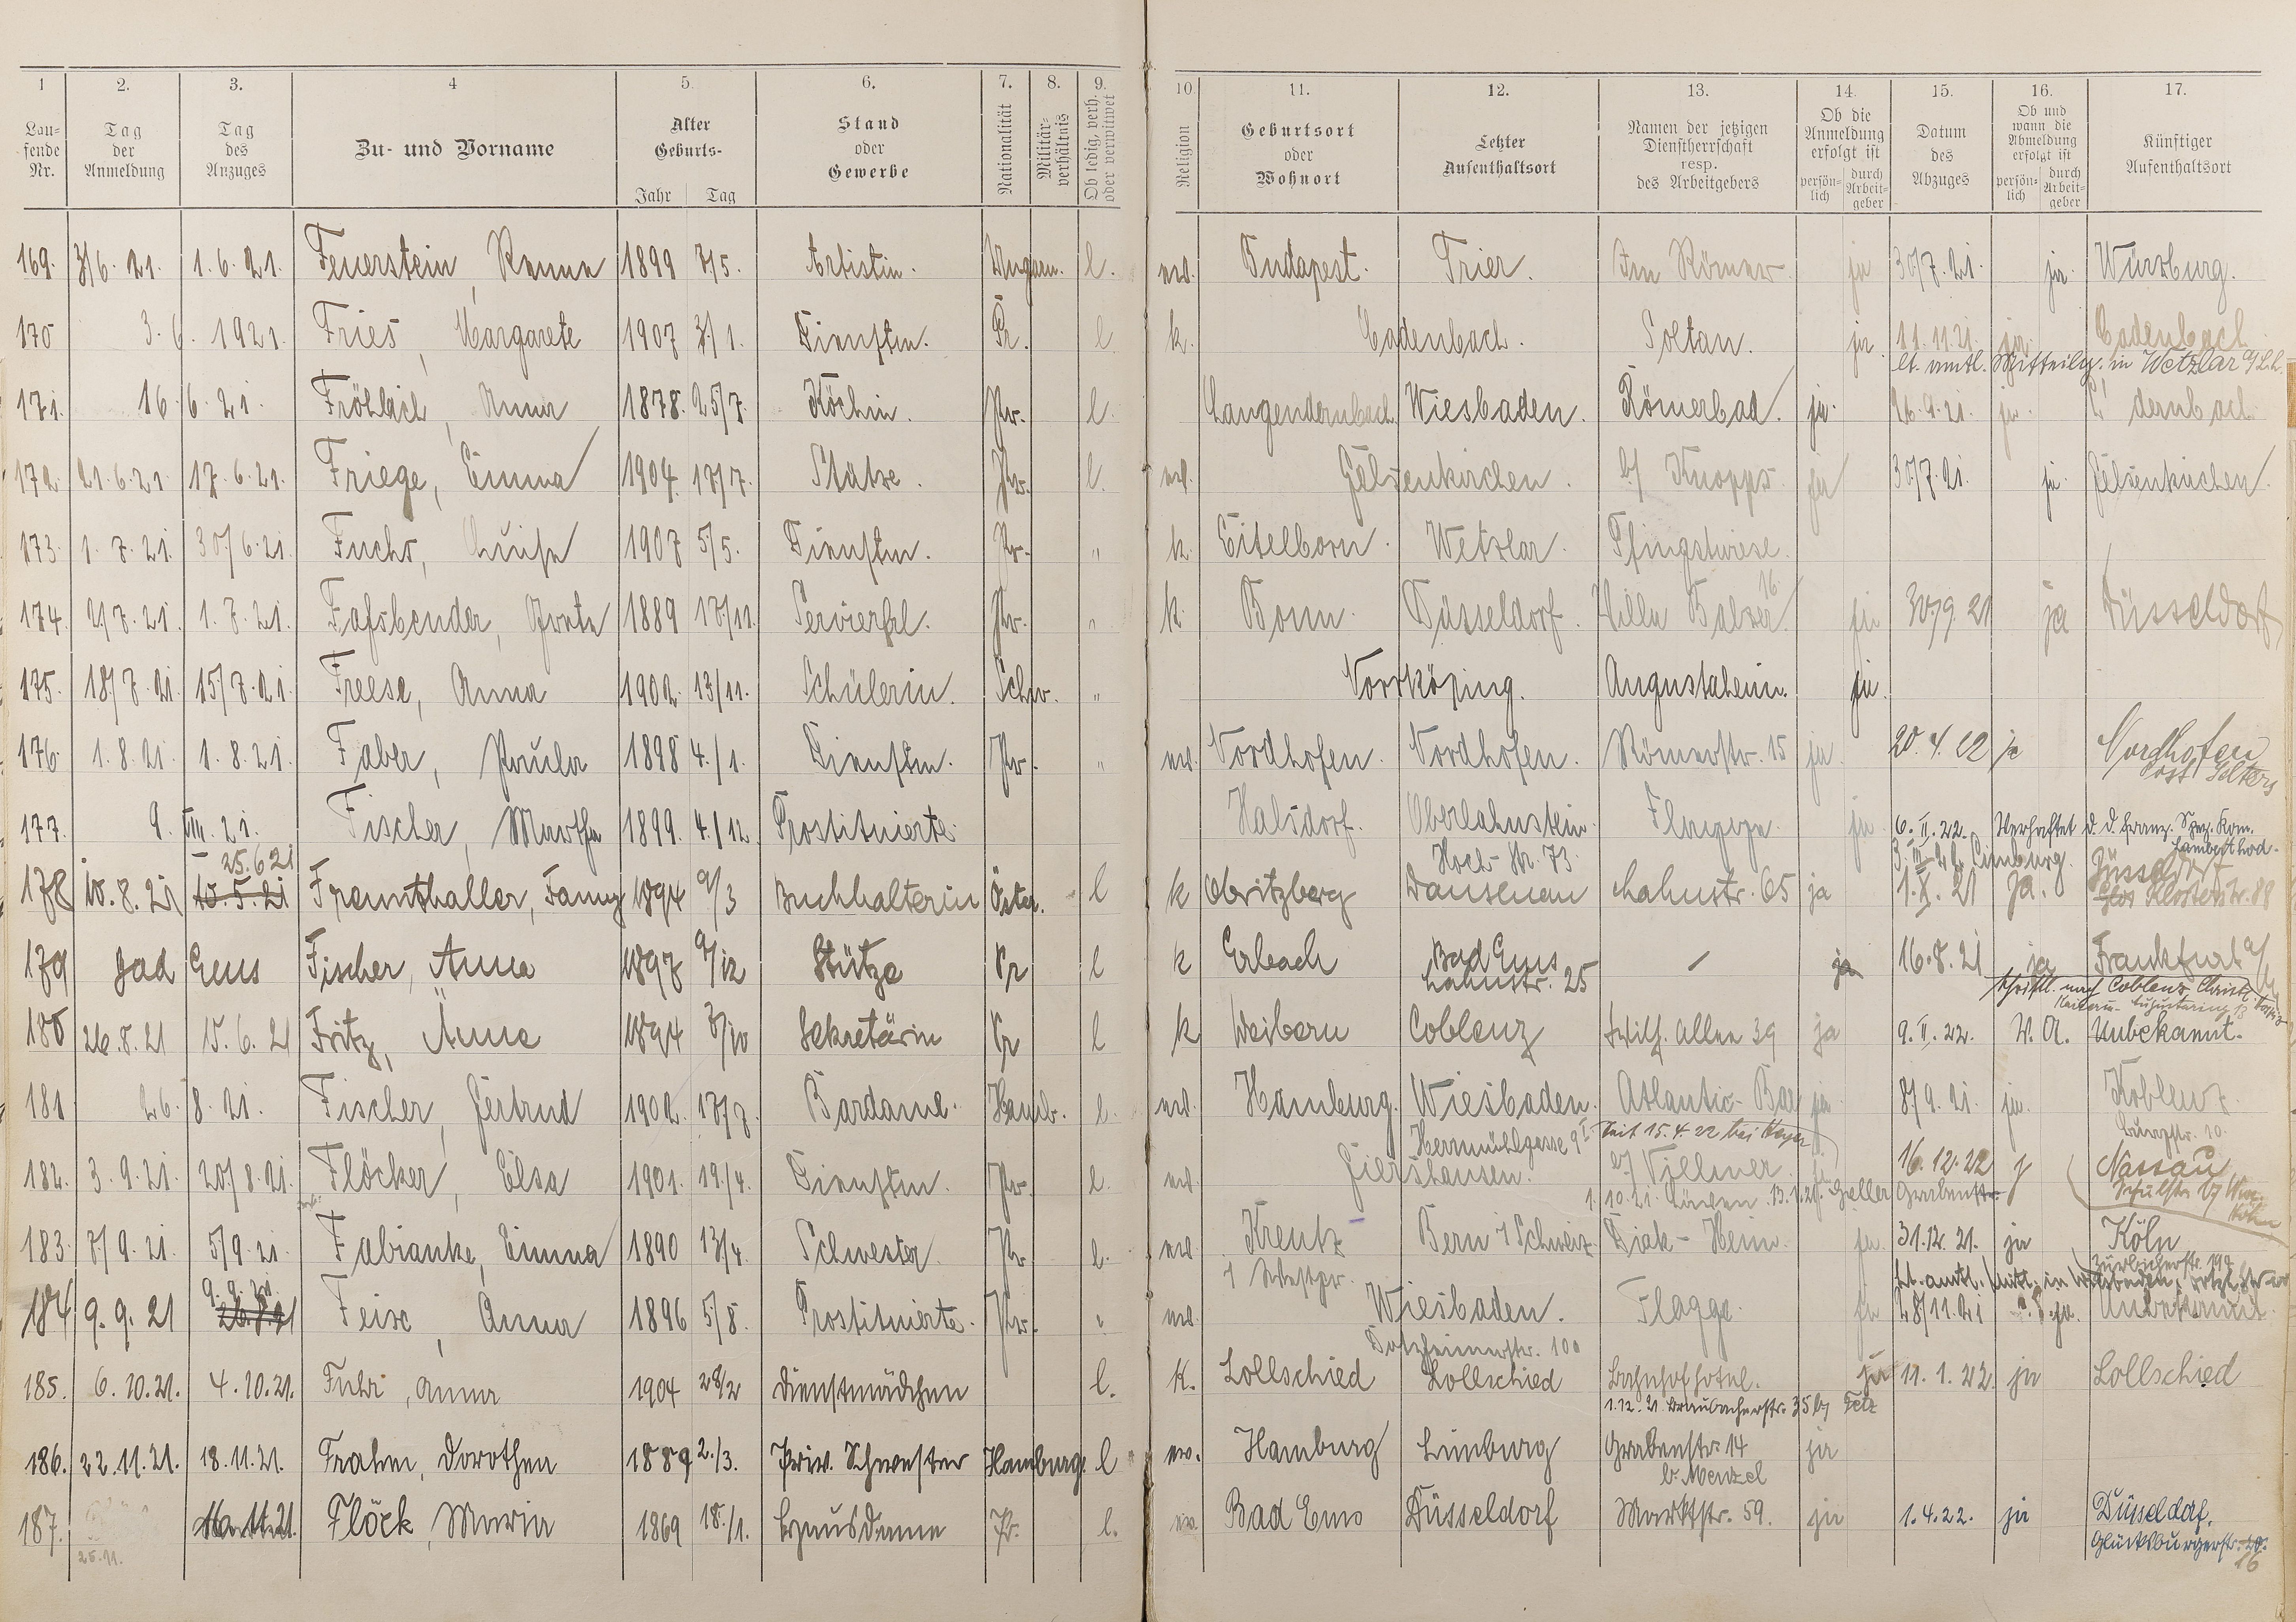 1 2. 3. 4 5. 6. 7. 8. 9. 10 11. 12. 13. 14. 15. 16. 17.
Lau-fende Nr. Tag der Anmeldung Tag des Anzuges Zu- und Vorname Alter Geburts- Jahr Tag Stand oder Gewerbe Nationalität Militär-verhältnis Ob ledig, verh. oder verwitwet Religion Geburtsort oder Wohnort Letzter Aufenthaltsort Namen der jetzigen Dienstherrschaft resp. des Arbeitgebers Ob die Anmeldung erfolgt ist persön-lich durch Arbeit-geber Datum des Abzuges Ob und wann die Abmeldung erfolgt ist persön-lich durch Arbeit-geber Künftiger Aufenthaltsort
169. 3/6. 21. 1. 6. 21. Feuerstein, 1899 7/5. Artistin. Ungarn. l. Budapest. Trier. Im Römer ja 30/7. 21. ja. Würzburg.
170 3. 6. 1921. Fries, Margarete 1907 3/1. Dienstm. Pr. l. k. Cadenbach. Soltan. ja. 11. 11. 21. ja Cadenbach
lt. amtl. Mitteilg. in Wetzlar a/Lah.
171. 16. 6. 21. Fröhlich, Anna 1878. 25/7. Köchin. Pr. l. Langendernbach. Wiesbaden. Römerbad. ja. 26. 9. 21. ja. L' dernbach.
172 21. 6. 21. 17. 6. 21. Friege, Emma 1904. 17/7. Stütze. Pr. l. ev. Gelsenkirchen. b/ Knopps. ja 30/7. 21. ja. Gelsenkirchen.
173. 1. 7. 21. 30/6. 21. Fuchs, Luise 1907 5/5. Dienstm. Pr. " k. Eitelborn. Wetzlar. Pfingstwiese.
174. 2/7. 21. 1. 7. 21. Faßbender, Grete 1889 17/11. Servierfrl. Pr. " k. Bonn. Düsseldorf. Villa Balzer 16. ja 30/9. 21 ja Düsseldorf
175. 18/7. 21. 15/7. 21. Freese, Anna 1902. 13/11. Schülerin. Schw. " Norrköping. Augustaheim. ja.
176. 1. 8. 21. 1. 8. 21. Faber, Paula 1898 4./1. Dienstm. Pr. " ev. Nordhofen. Nordhofen. Römerstr. 15 ja. 20. 4. 22 ja Nordhofen
Post Selters
177. 9. VIII. 21. Fischer, Martha 1899. 4./12. Prostituierte. Halsdorf. Oberlahnstein Flagge ja 6. II. 22. Verhaftet d. d. franz. Spez. Kom.
25.6.21 Hoch-Str. 73. 3. III. 22 Limburg.
178 10. 8. 21 10. 5. 21 Fraunthaller, Fanny 1894 9/3 Buchhalterin Öster. l k Obritzberg Dausenau Lahnstr. 65 ja 1. X. 21 ja. Düsseldorf
Klosterstr. 88
179 Bad Ems Fischer, Anna 1897 9/12 Stütze Pr l k Erbach Bad Ems – ja 16. 8. 21 ja Frankfurt a/
Lahnstr. 25
schriftl. nach Coblenz
180 26. 8. 21 15. 6. 21 Fritz, Änne 1894 7/10 Sekretärin Pr l k Weibern Coblenz Wilh. Allee 39 ja 9. II. 22. V. A. Unbekannt.
181 26. 8. 21. Fischer, Gertrud 1902. 17/7. Bardame. Hamb. l. ev. Hamburg. Wiesbaden. Atlantic-Bar ja 8/9. 21. ja. Koblenz.
Herrnmühlgasse 9 I. seit 15. 4. 22 bei Burgstr. 10.
182. 3. 9. 21. 20/8. 21. Flöcker, Elsa 1901. 19/4. Dienstm. Pr. l. ev. Giershausen. b/ Villmer. ja 16. 12. 22 j Nassau
Grabenstr. Schulstr.
183. 7/9. 21. 5/9. 21. Fabianke, Emma 1890 13/4. Schwester. Pr l. ev. Krentz Bern i/Schweiz Diak-Heim. ja. 31. 12. 21. ja Köln
i/ Westpr. Zülpicherstr. 199
9. 9. 21. lt. amtl. Mitt. in Wiesbaden,
184 9. 9. 21 26. 8. 21 Feise, Anna 1896 5/8. Prostituierte. Pr. " ev. Wiesbaden. Flagge. ja 28/11. 21 ja. Unbekannt
Dotzheimerstr. 100
185. 6. 10. 21. 4. 10. 21. Fuhr, Anna 1904 28/2 Dienstmädchen l. K. Lollschied Lollschied Bahnhofhotel. ja 11. 1. 22. ja Lollschied
1. 12. 21. Braubacherstr. 35 b/ Fetz
186. 22. 11. 21. 18. 11. 21. Frahm, Dorothea 1889 2./3. Priv. Schwester Hamburg. l ev. Hamburg Limburg Grabenstr. 14 ja
b. Menzel
187. 11. 21. Flöck, Maria 1869 18./1. Hausdame Pr. l. ev. Bad Ems Düsseldorf Marktstr. 59. ja 1. 4. 22. ja Düsseldorf.
25. 11. Glücksburgerstr. 20.
16